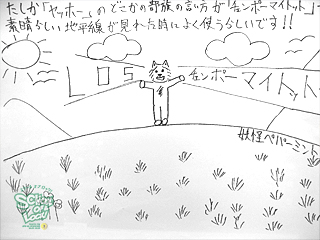 たしか「ヤッホー」のどこかの部族の言い方が「チンポーマイトット」…
素晴らしい地平線が見れた時によく使うらしいです!!
LOS
チンポーマイトット
妖怪ペパーミント